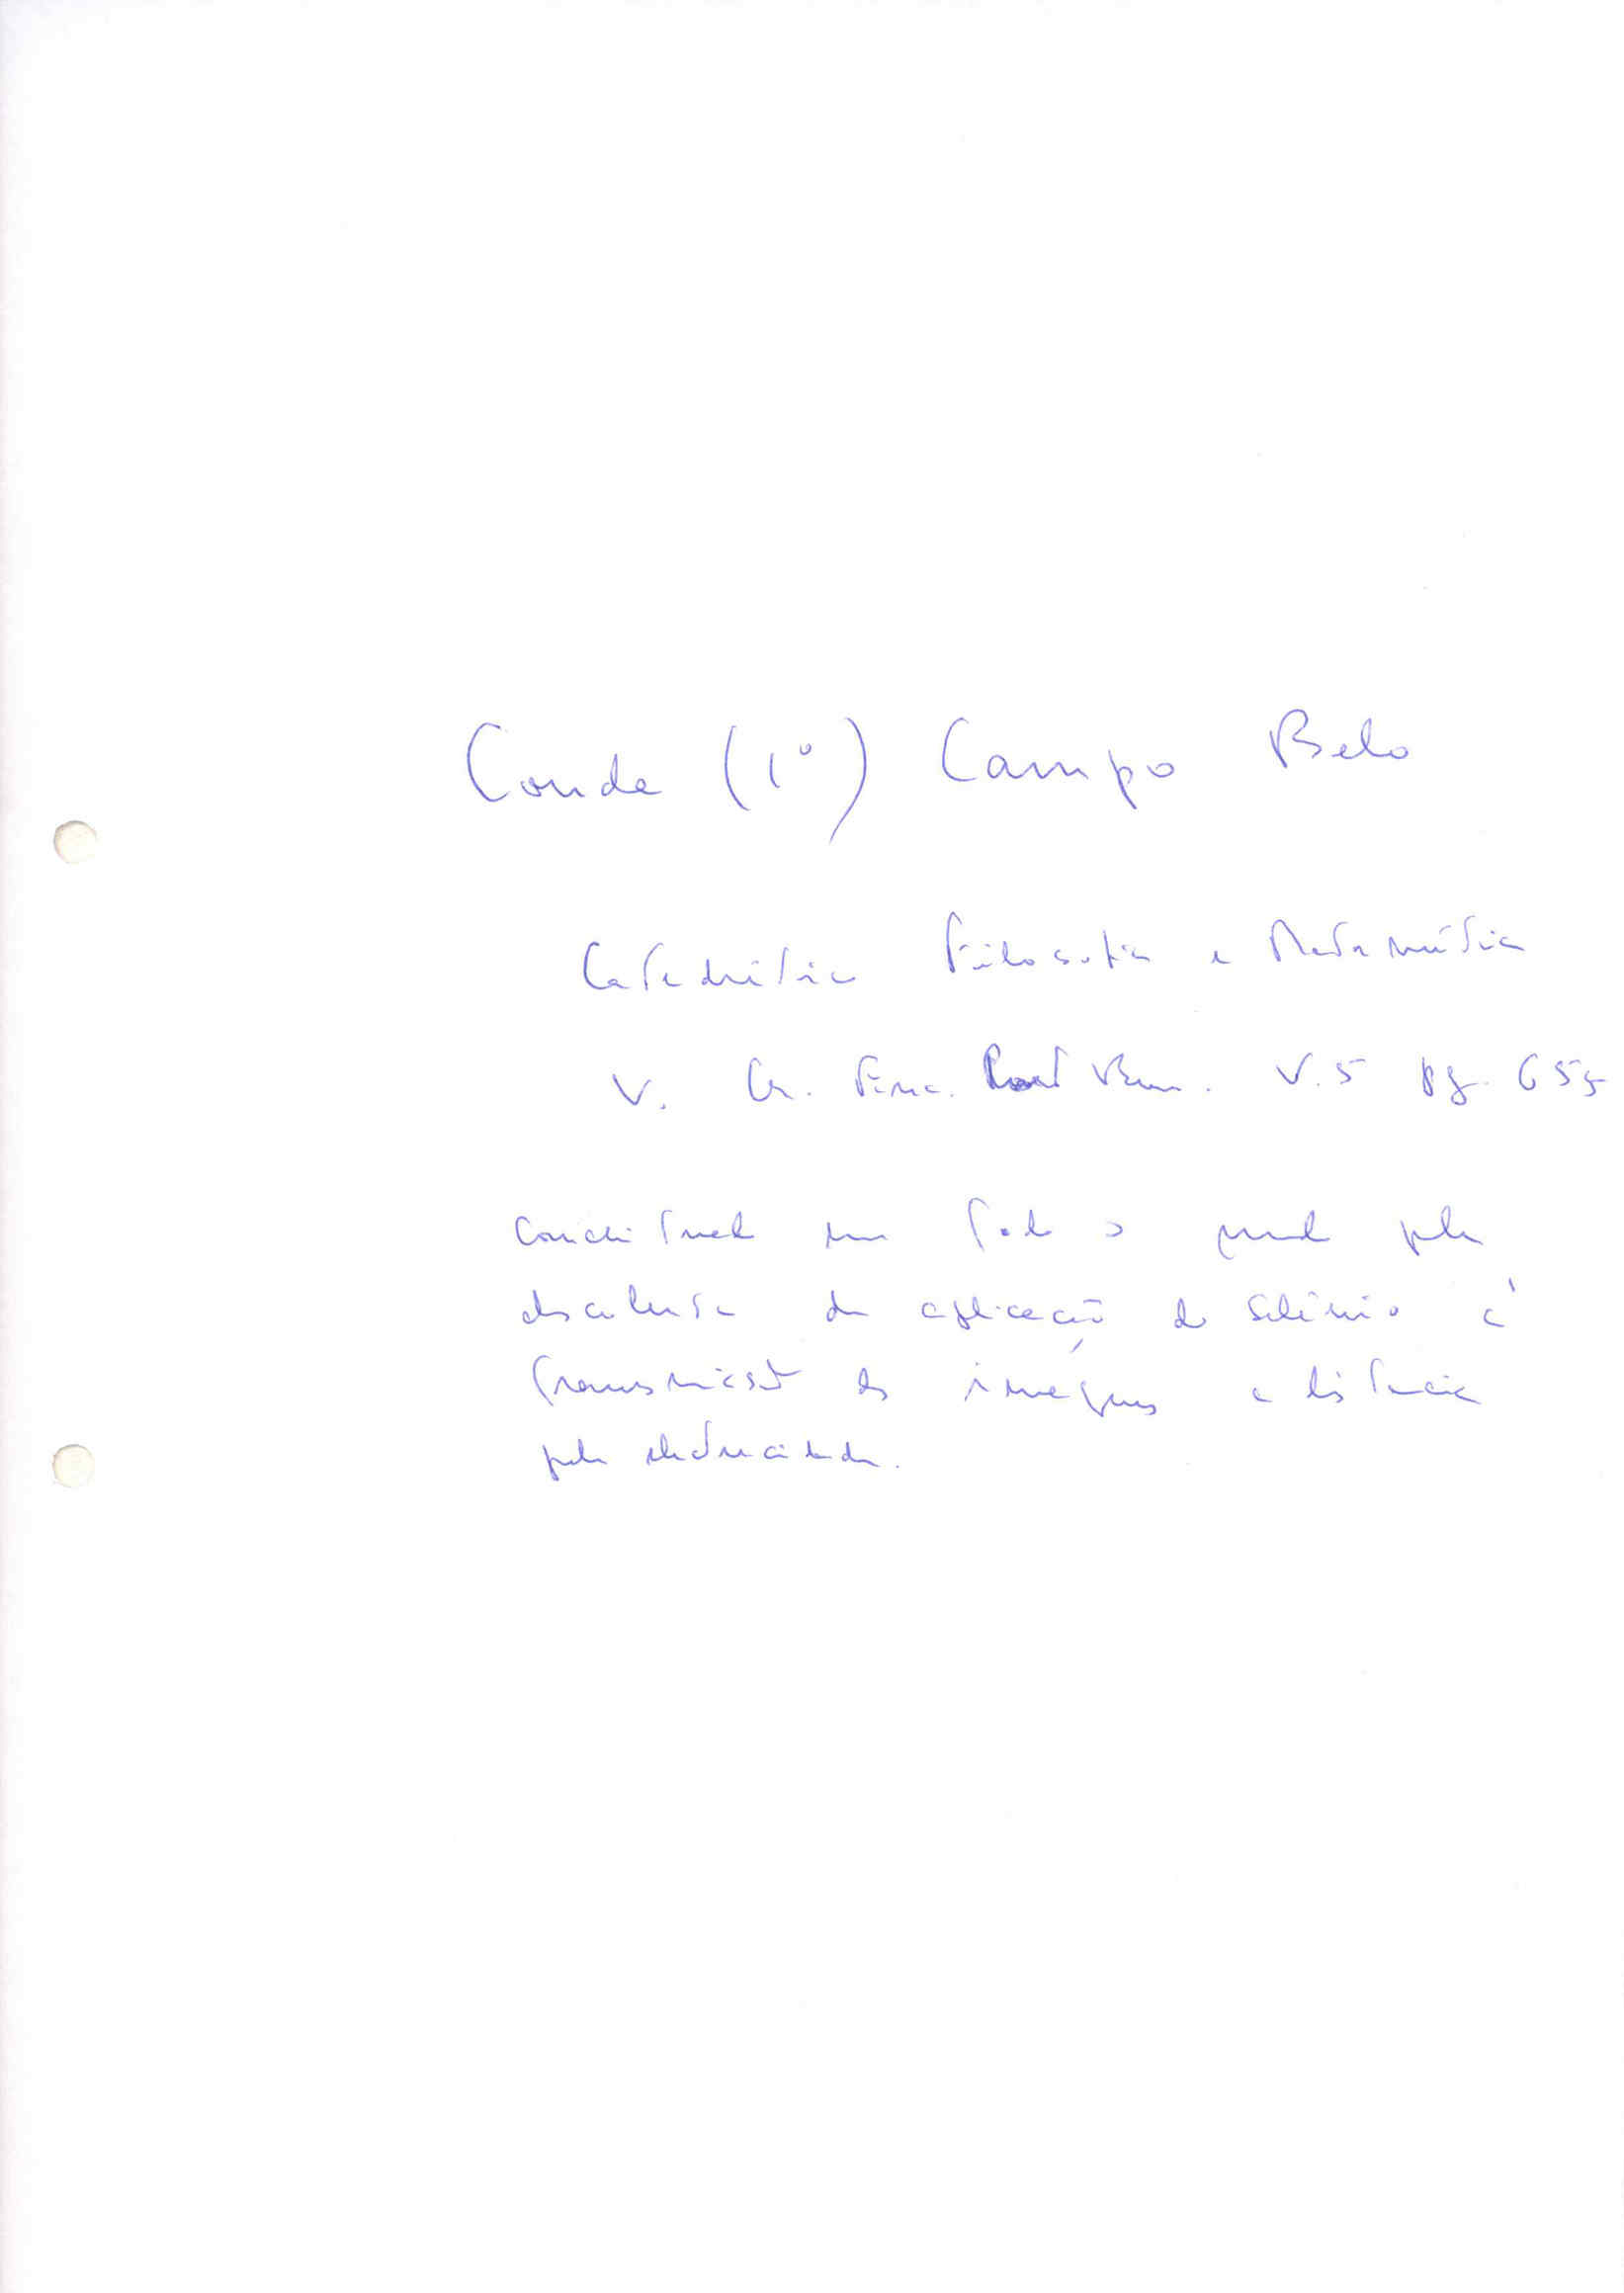 Conde (1º) Campo Belo
Catedrático Filosofia e Matemática
V. Gr. Enc. Port. Bras. V.5 pg. 655
Conceituado em todo o mundo pela
descoberta da aplicação do Selénio à
transmissão de imagens a distância
pela electricidade.